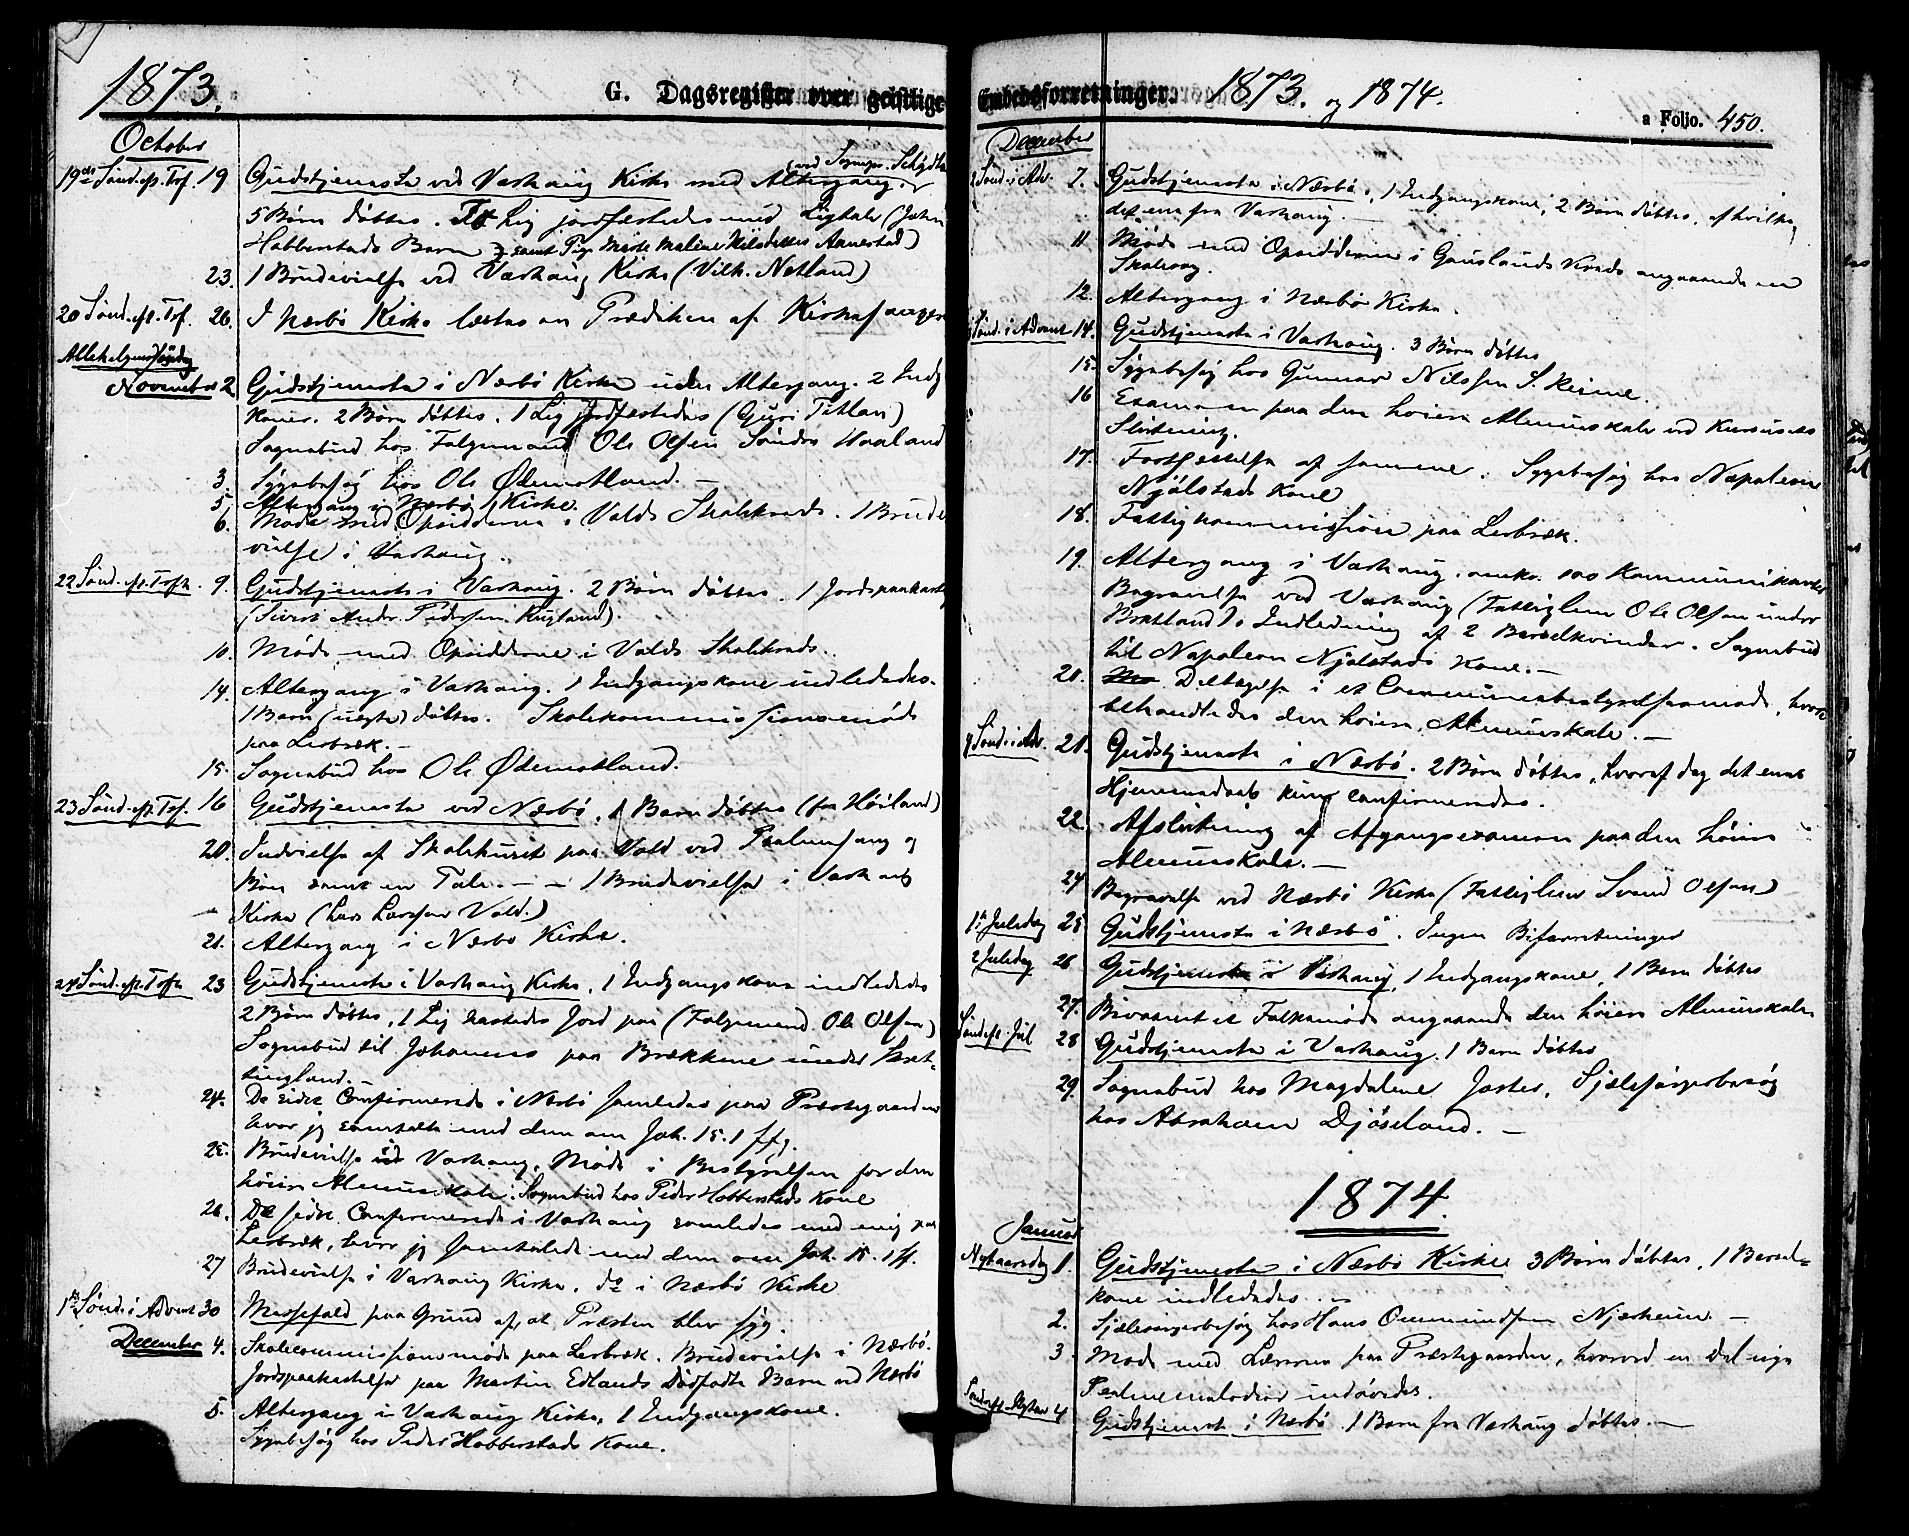 1873.
G. Dagsregister over geistlige
October
(ved Sognepr. Schjødte)
19de Sønd. ef. Tref. 19 Gudstjeneste ved Varhaug Kirke med Altergang.
5 Børn døbtes. To Lig jordfæstedes med Ligtale (John
Habberstads Barn & samt Pige Marte Maline Nilsdatter Aanestad)
23. 1 Brudevielse ved Varhaug Kirke (Vilh. Netland)
20 Sønd. ef. Tref. 26. I Nærbø Kirke læstes en Prædiken af Kirkesanger
Allehelgens Søndag
November 2 Gudstjeneste i Nærbø Kirke uden Altergang. 2 Indg
koner. 2 Børn døbtes. 1 Lig jordfæstedes (Guri Titlan)
Sognebud hos Følgemand Ole Olsen Søndre Haaland
3. Sygebesøg hos Ole Ødemotland. —
5. Altergang i Nærbø Kirke.
6. Møde med Opsidderne i Valds Skolekreds. 1 Brude
vielse i Varhaug.
22 Sønd. ef. Trefn. 9. Gudstjeneste i Varhaug. 2 Børn døbtes. 1 Jordspaakastelse
(Sivert Andr. Pedersen Rugland).
10. Møde med Opsidderne i Valds Skolekreds.
14. Altergang i Varhaug. 1 Indgangskone indledades.
1 Barn (uægte) døbtes. Skolekommissionsmøde
paa Lerbræk. —
15. Sognebud hos Ole Ødemotland.
23 Sønd. ef. Tref. 16 Gudstjeneste ved Nærbø, 1 Barn døbtes (fra Høiland)
20. Indvielse af Skolehuset paa Vald ved Psalmesang og
Bøn samt en Tale. — — 1 Brudevielse i Varhaug
Kirke (Lars Larssen Vald.)
21. Altergang i Nærbø Kirke.
24 Sønd. ef. Trefn 23 Gudstjeneste i Varhaug Kirke, 1 Indgangskone indledades
2 Børn døbtes, 1 Lig kastedes Jord paa (Følgemand Ole Olsen)
Sognebud til Johannes paa Brækkene under Skret-
tingland.
24. De sidst Confirmerede i Nærbø samledes paa Præstegaarden
hvor jeg samtalte med dem om Joh. 15. 1 ffg.
25. Brudevielse ved Varhaug, Møde i Bestyrelsen for den
høiere Almueskole. Sognebud hos Peder Habberstads Kone
26. De sidst Confirmerede i Varhaug samledes med mig paa
Lerbræk, hvor jeg samtalede med dem om Joh. 15. 1 ff.
27 Brudevielse i Varhaug Kirke. do i Nærbø Kirke
1ste Sønd. i Advent 30 Messefald paa Grund af, at Præsten blev syg.
December 4. Skolecommissionsmøde paa Lerbræk. Brudevielse i Nærbø.
Jordspaakastelse paa Martin Edlands Dødfødte Barn ved Nærbø
5. Altergang i Varhaug Kirke, 1 Indgangskone.
Sygebesøg hos Peder Habberstads Kone.
Embedsforretninger. 1873. og 1874.
a Folio. 450.
December
2 Sønd. i Adv. 7. Gudstjeneste i Nærbø, 1 Indgangskone, 2 Børn døbtes, af hvilke
det ene fra Varhaug. —
11. Møde med Opsidderne i Gauslands Kreds angaaende en
Skolesag.
12. Altergang i Nærbø Kirke.
3 Sønd. i Advent 14. Gudstjeneste i Varhaug. 3 Børn døbtes
15. Sygebesøg hos Gunnar Nilssen S. Reime.
16 Examen paa den høiere Almueskole ved Kursusets
Slutning.
17. Fortsettelse af samme. Sygebesøg hos Napoleon
Njølstads Kone
18. Fattigkommission paa Lerbræk.
19. Altergang i Varhaug. omkr. 100 Kommunikanter
Begravelse ved Varhaug (Fattiglem Ole Olsen under
Bratland). Indledning af 2 Barselkvinder. Sognebud
til Napoleon Njølstads Kone. —
20. Deltagelse i et Communebestyrelsesmøde, hvori
behandledes den høiere Almueskole. —
4 Sønd. i Adv. 21. Gudstjeneste i Nærbø. 2 Børn døbtes, hvoraf dog det enes
Hjemmedaab kun confirmeredes.
22. Afslutning af Afgangsexamen paa den høiere
Almueskole. —
24 Begravelse ved Nærbø Kirke (Fattiglem Svend Olsen)
1ste Juledag 25 Gudstjeneste i Nærbø. Ingen Biforretninger
2 Juledag 26 Gudstjeneste i Varhaug, 1 Indgangskone, 1 Barn døbtes
27. Bivaanet et Folkemøde angaaende den høiere Almueskole
Sønd. ef. Jul 28 Gudstjeneste i Varhaug. 1 Barn døbtes
29. Sognebud hos Magdalene Jaster, Sjælesørgerbesøg
hos Abraham Djøseland. —
1874.
Januar
Nytaarsdag 1. Gudstjeneste i Nærbø Kirke 3 Børn døbtes, 1 Barsel-
kone indledades. —
2. Sjælesørgerbesøg hos Hans Ommundsen Njærheim. —
3 Møde med Lærerne paa Præstegaarden, hvorved en Del nye
Psalmemelodier indøvedes.
Sønd. ef. Nytaar 4 Gudstjeneste i Nærbø. 1 Barn fra Varhaug døbtes. —